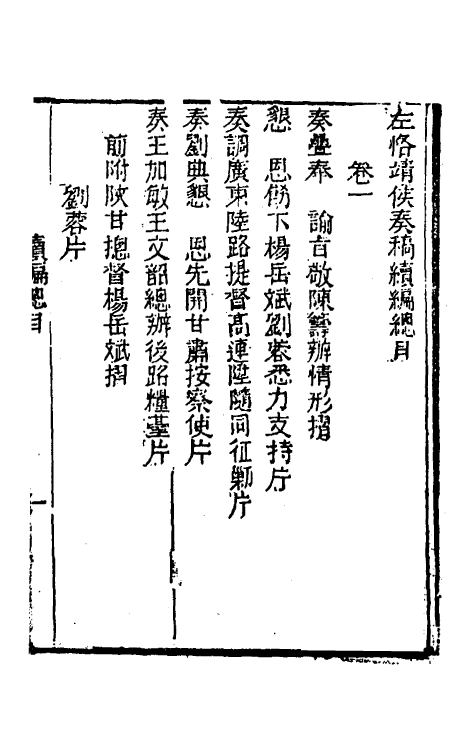 左恪靖侯奏稿續編總目
卷一
奏疊奉　諭旨敬陳籌辦情形摺
懇　恩飭下楊岳斌劉蓉悉力支持片
奏調廣東陸路提督高連陞隨同征勦片
奏劉典懇　恩先開甘肅按察使片
奏王加敏王文韶總辦後路糧臺片
前附陝甘總督楊岳斌摺
劉蓉片
續編總目
一